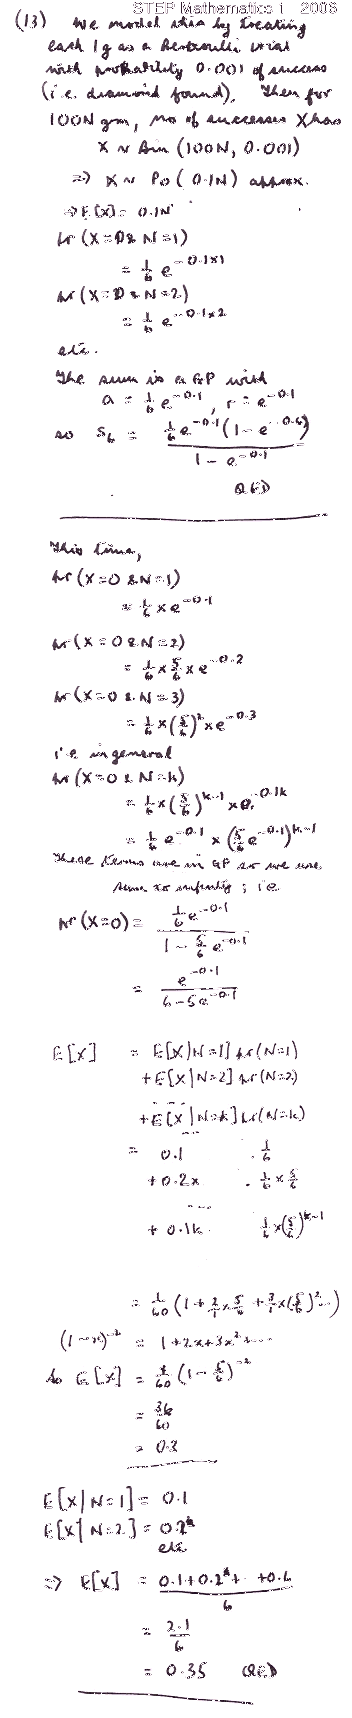 STEP Mathematics 1 2008
(13) We model this by treating
each 1g as a Bernoulli trial
with probability 0.001 of success
(i.e. diamond found). Then for
100N gm, no of successes X has
X ~ Bin (100N, 0.001)
⇒ X ~ Po(0.1N) approx.
⇒ E[X] = 0.1N
Pr(X=0 & N=1)
= 1/6 e^{-0.1×1}
Pr(X=0 & N=2)
= 1/6 e^{-0.1×2}
etc.
The sum is a GP with
a = 1/6 e^{-0.1}, r = e^{-0.1}
so S₆ = 1/6 e^{-0.1}(1 - e^{-0.6}) / (1 - e^{-0.1})
QED
This time,
Pr(X=0 & N=1)
= 1/6 × e^{-0.1}
Pr(X=0 & N=2)
= 1/6 × 5/6 × e^{-0.2}
Pr(X=0 & N=3)
= 1/6 × (5/6)² × e^{-0.3}
i.e in general
Pr(X=0 & N=k)
= 1/6 × (5/6)^{k-1} × e^{-0.1k}
= 1/6 e^{-0.1} × (5/6 e^{-0.1})^{k-1}
These terms are in GP so we use
sum to infinity; i.e.
Pr(X=0) = 1/6 e^{-0.1} / (1 - 5/6 e^{-0.1})
= e^{-0.1} / (6 - 5e^{-0.1})
E[X] = E[X|N=1] Pr(N=1)
+ E[X|N=2] Pr(N=2)
...
+ E[X|N=k] Pr(N=k)
...
= 0.1 . 1/6
+ 0.2× . 1/6 × 5/6
...
+ 0.1k 1/6 × (5/6)^{k-1}
= 1/60 (1 + 2/1 × 5/6 + 3/1 × (5/6)² ...)
(1-x)^{-2} = 1 + 2x + 3x² + ...
So E[X] = 1/60 (1 - 5/6)^{-2}
= 36/60
= 0.3
E[X|N=1] = 0.1
E[X|N=2] = 0.2
etc
⇒ E[X] = (0.1 + 0.2 + ... + 0.6) / 6
= 2.1/6
= 0.35 QED